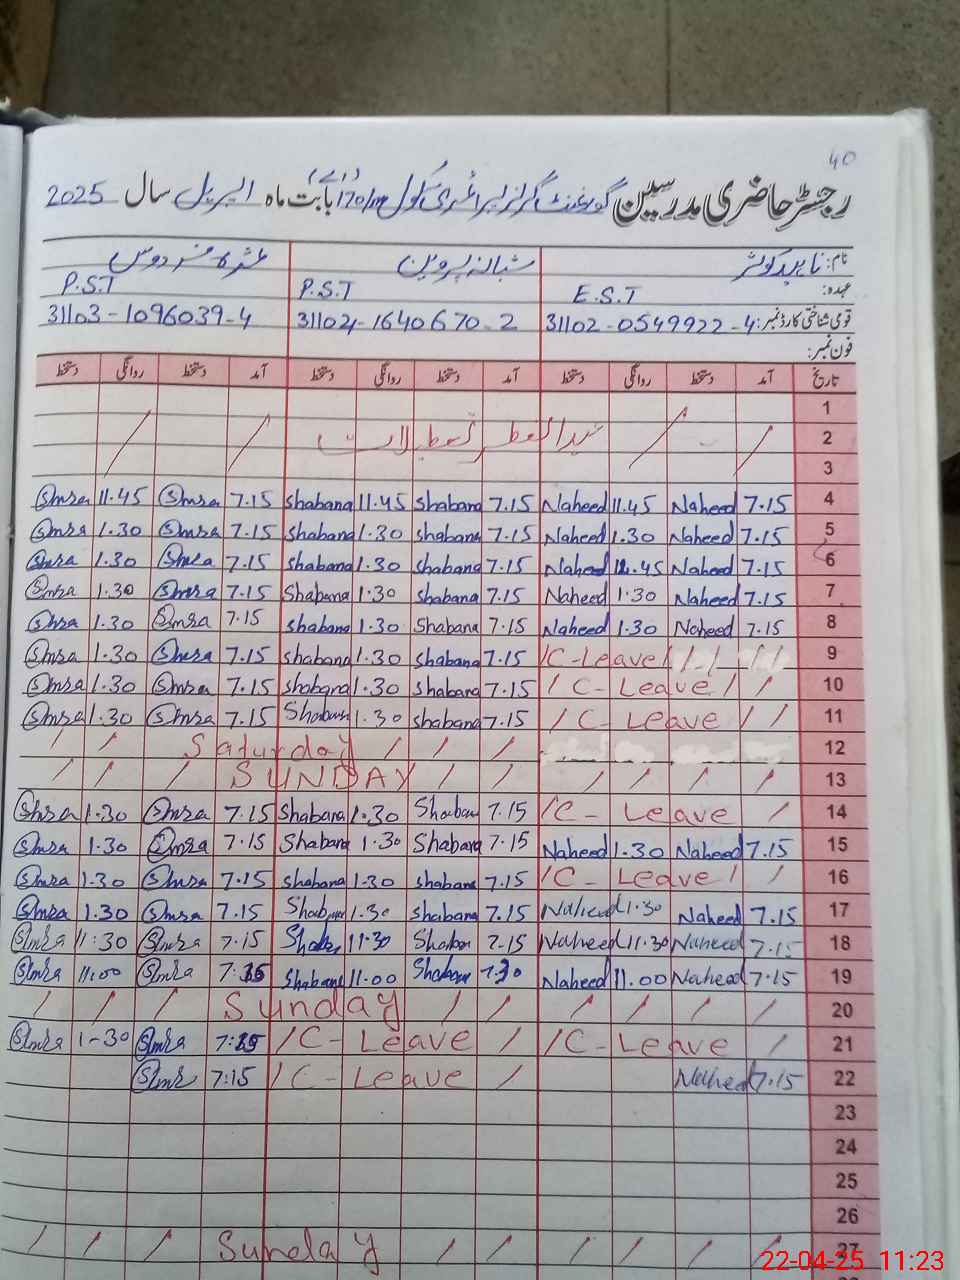 40
رجسٹر حاضری مدرسین گورنمنٹ گرلز پرائمری سکول 170/m بابت ماہ اپریل سال 2025
نام: ناہید کوثر شبانہ پروین
عہدہ: E.S.T P.S.T P.S.T
قومی شناختی کارڈ نمبر: 31102-0549922-4 31102-1640670-2 31103-1096039-4
فون نمبر:
تاریخ آمد دستخط روانگی دستخط آمد دستخط روانگی دستخط آمد دستخط روانگی دستخط
1
2 عیدالفطر تعطیلات
3
Smra 11.45 Smra 7.15 Shabana 11.45 Shabana 7.15 Naheed 11.45 Naheed 7.15 4
Smra 1.30 Smra 7.15 Shabana 1.30 Shabana 7.15 Naheed 1.30 Naheed 7.15 5
Smra 1.30 Smra 7.15 Shabana 1.30 Shabana 7.15 Naheed 12.45 Naheed 7.15 6
Smra 1.30 Smra 7.15 Shabana 1.30 Shabana 7.15 Naheed 1.30 Naheed 7.15 7
Smra 1.30 Smra 7.15 Shabana 1.30 Shabana 7.15 Naheed 1.30 Naheed 7.15 8
Smra 1.30 Smra 7.15 Shabana 1.30 Shabana 7.15 / C-Leave / / / / / 9
Smra 1.30 Smra 7.15 Shabana 1.30 Shabana 7.15 / C-Leave / / 10
Smra 1.30 Smra 7.15 Shabana 1.30 Shabana 7.15 / C-Leave / / 11
/ / Saturday / / / 12
/ / / SUNDAY / / / / / / 13
Smra 1.30 Smra 7.15 Shabana 1.30 Shabana 7.15 / C-Leave / 14
Smra 1.30 Smra 7.15 Shabana 1.30 Shabana 7.15 Naheed 1.30 Naheed 7.15 15
Smra 1.30 Smra 7.15 Shabana 1.30 Shabana 7.15 / C-Leave / / 16
Smra 1.30 Smra 7.15 Shabana 1.30 Shabana 7.15 Naheed 1.30 Naheed 7.15 17
Smra 11:30 Smra 7.15 11.30 7.15 Naheed 11.30 Naheed 7.15 18
Smra 11.00 Smra Shabana 11.00 Shabana Naheed 11.00 Naheed 7.15 19
/ / / Sunday / / / / / / 20
Smra 1-30 Smra / C-Leave / / C-Leave / 21
Smra 7:15 / C-Leave / Naheed 7.15 22
23
24
25
26
/ / / Sunday / / / / / 27
22-04-25 11:23